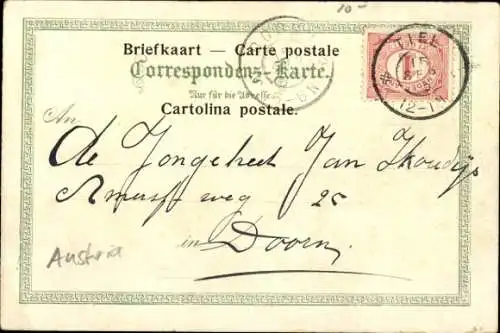 10-
Briefkaart — Carte postale
Correspondenz-Karte.
Nur für die Adresse.
Cartolina postale.
TIEL
12-1N
1
An
de Jongeheer Jan
weg 25
in Doorn
Austria